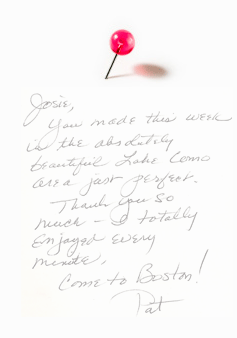 Josie,
You made this week
in the absolutely
beautiful Lake Como
area just perfect.
Thank you so
much - I totally
enjoyed every
minute.
Come to Boston!
Pat